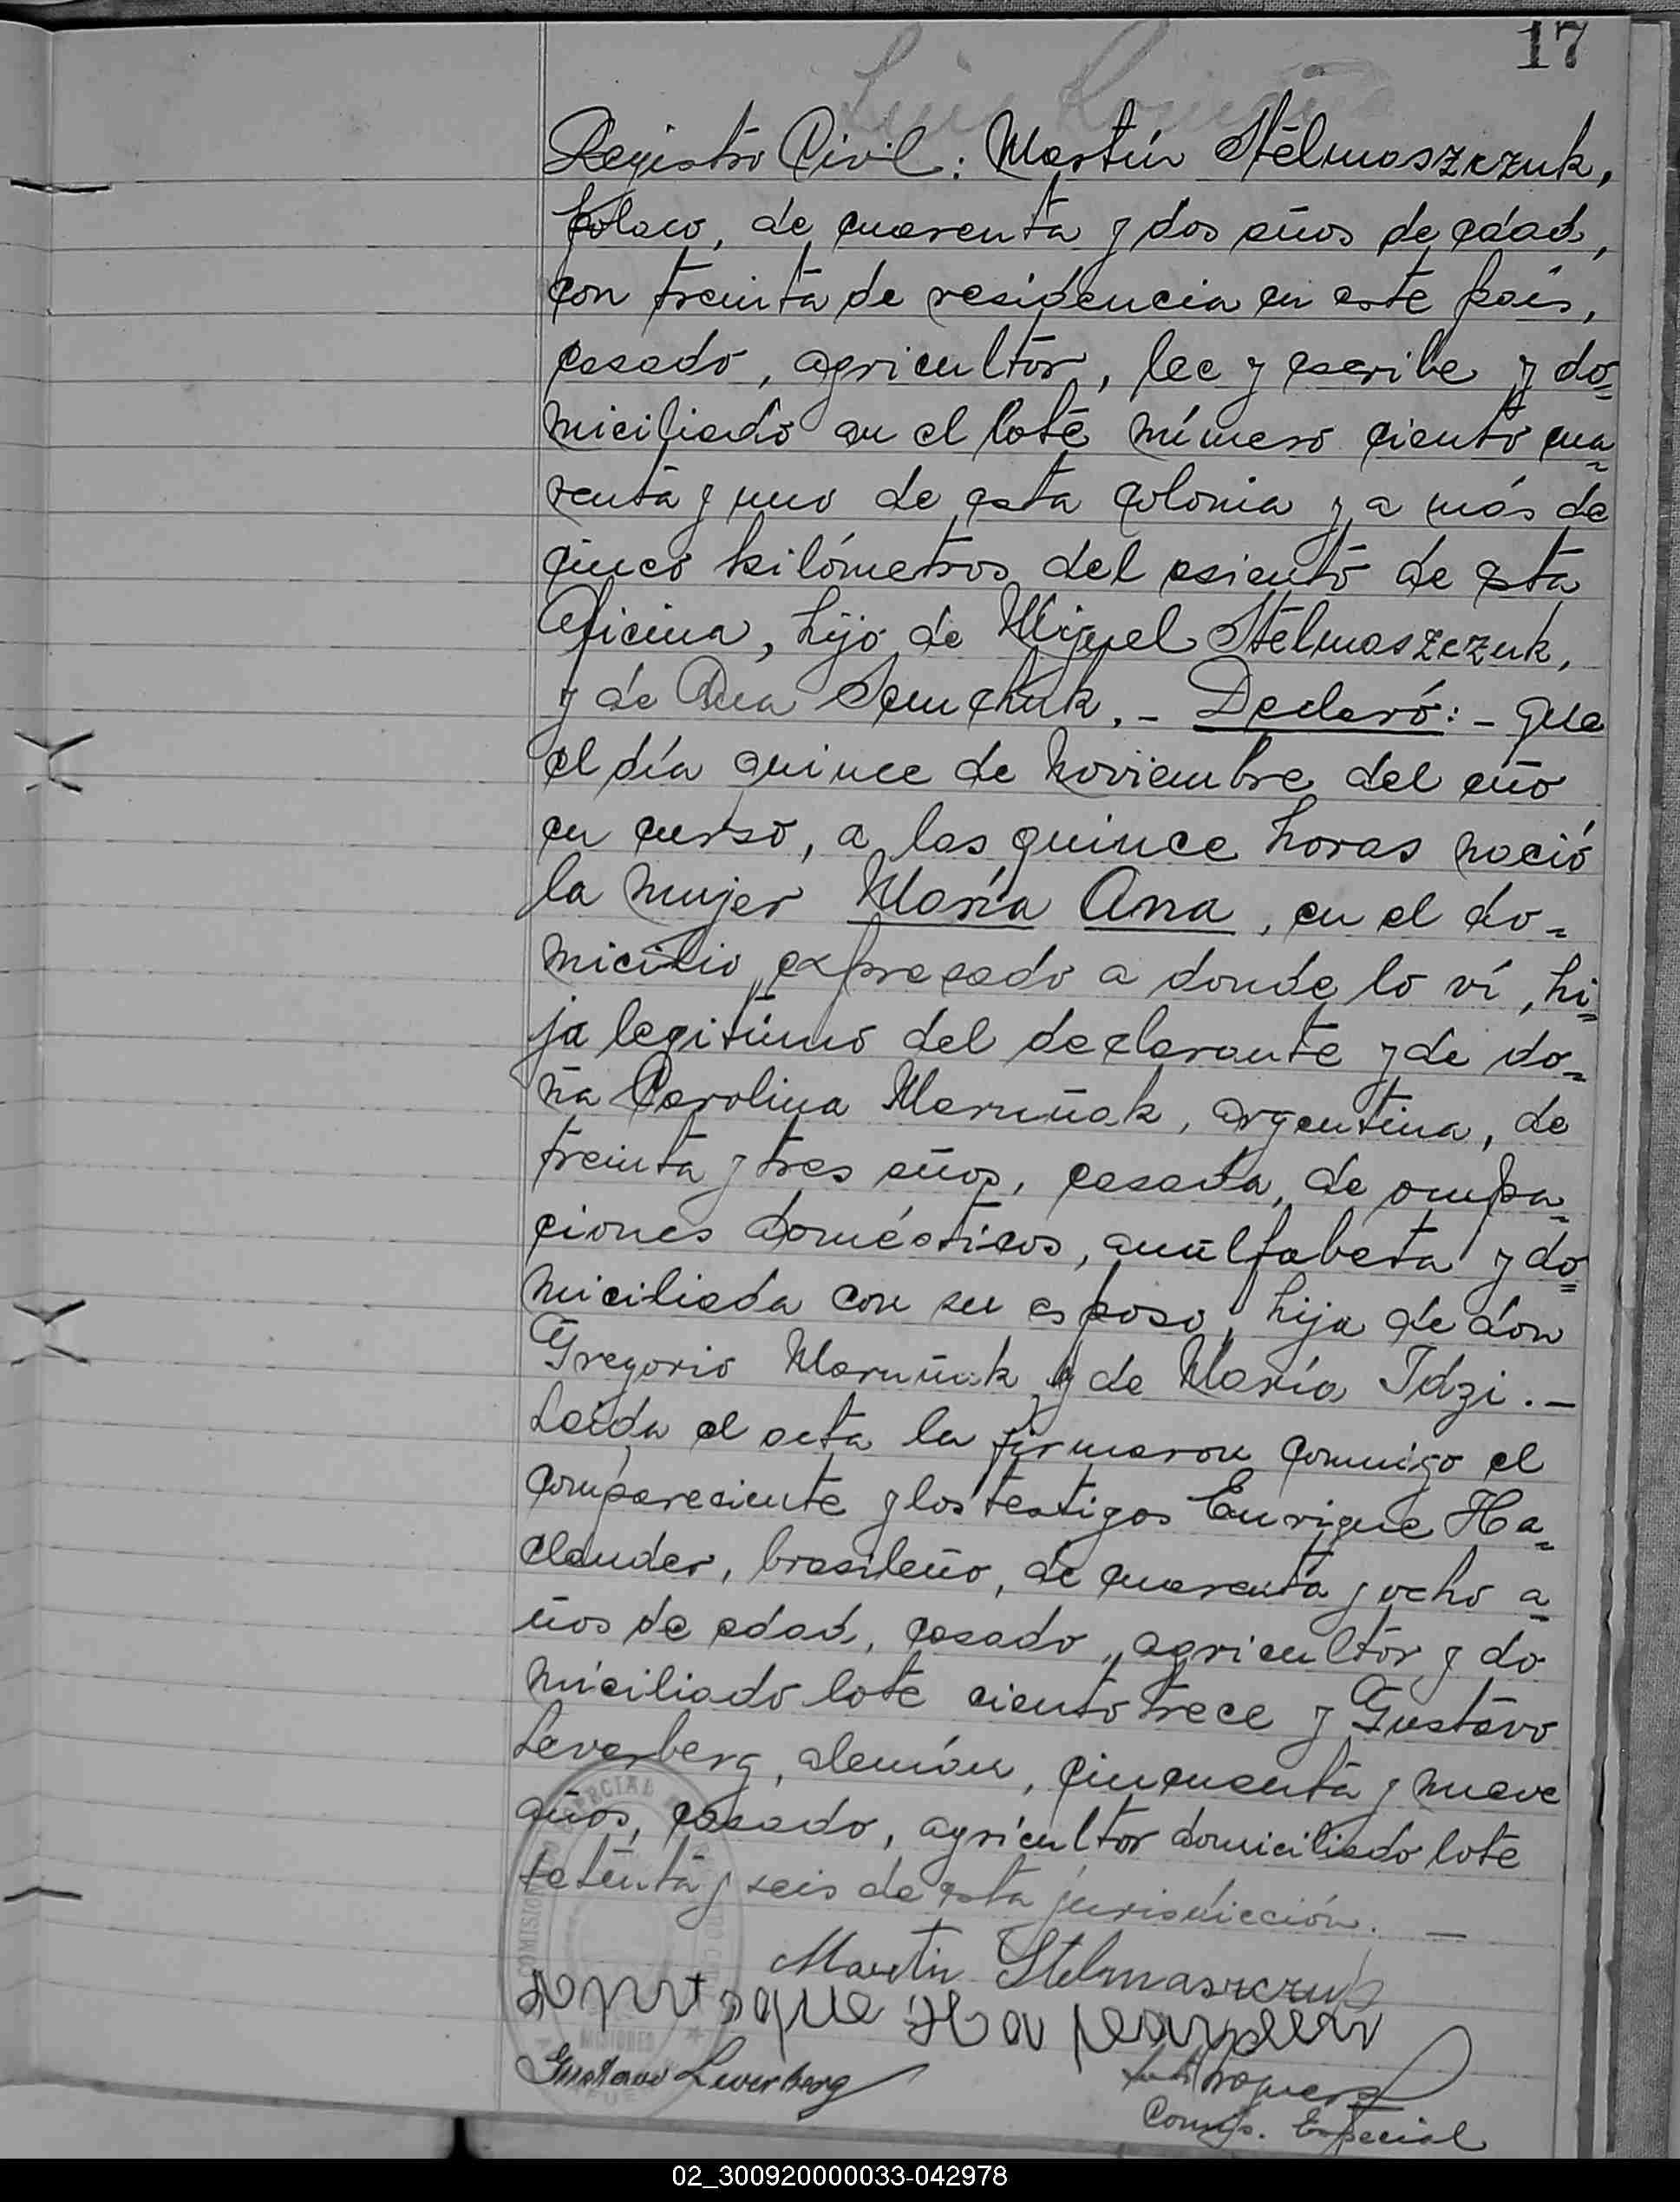 17
Registro Civil: Martín Stelmaszczuk,
polaco, de cuarenta y dos años de edad,
con treinta de residencia en este país,
casado, agricultor, lee y escribe y do=
miciliado en el lote número ciento cua=
renta y uno de esta colonia y a más de
cinco kilómetros del asiento de esta
Oficina, hijo de Miguel Stelmaszczuk,
y de Ana Semchuk. - Declaró: - que
el día quince de Noviembre del año
en curso, a las quince horas nació
la mujer María Ana, en el do=
micilio expresado a donde lo ví, hi=
ja legítimo del declarante y de do=
ña Carolina Maruñak, argentina, de
treinta y tres años, casada, de ocupa=
ciones domésticos, analfabeta y do=
miciliada con su esposo, hija de don
Gregorio Maruñak y de María Idzi. -
Leída el acta la firmaron conmigo el
compareciente y los testigos Enrique Ha=
clander, brasileño, de cuarenta y ocho a=
ños de edad, casado, agricultor y do
miciliado lote ciento trece y Gustavo
Leverberg, alemán, cincuenta y nueve
años, casado, agricultor domiciliado lote
setenta y seis de esta jurisdicción. -
Martin Stelmaszczuk
Gustavo Leverberg
Comis. Especial
MISIONES
02_300920000033-042978